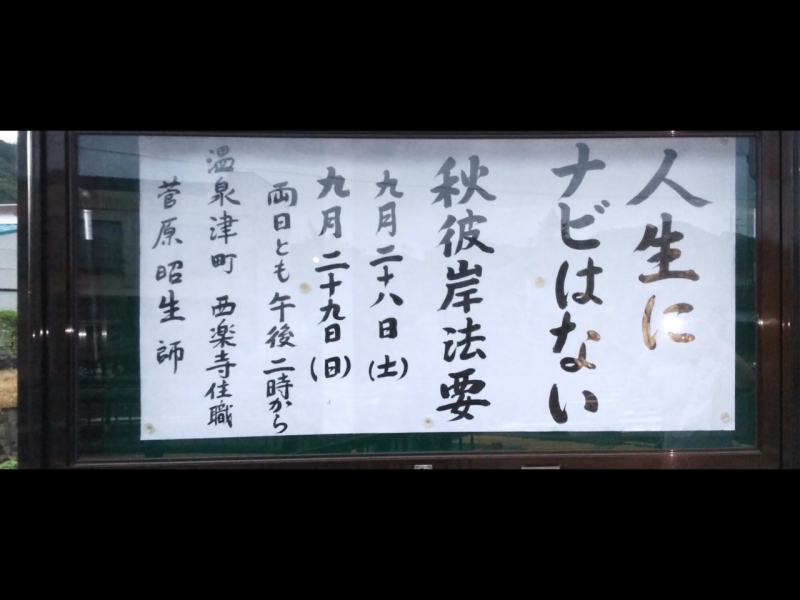 人生に
ナビはない
秋彼岸法要
九月二十八日(土)
九月二十九日(日)
両日とも午後二時から
温泉津町 西楽寺住職
菅原昭生師